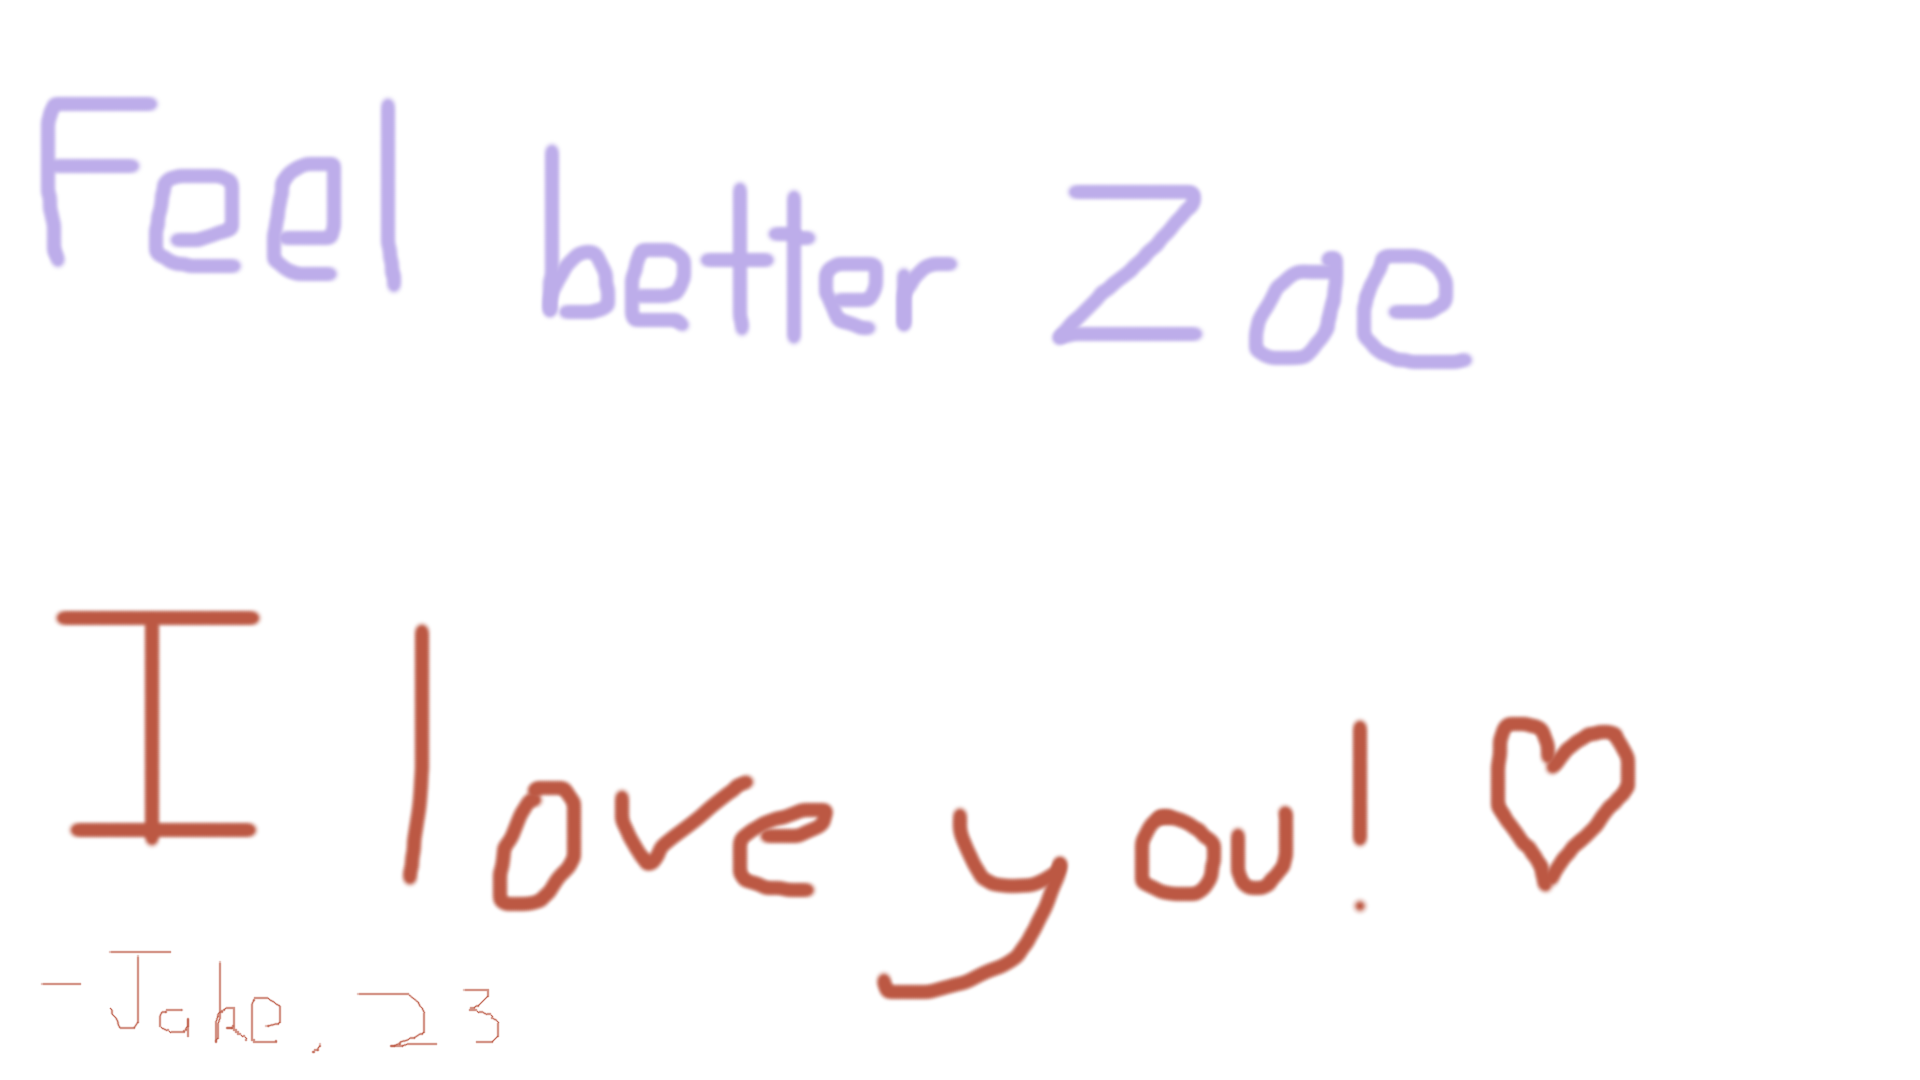 Feel better Zoe
I love you! ♡
- Jake, 23